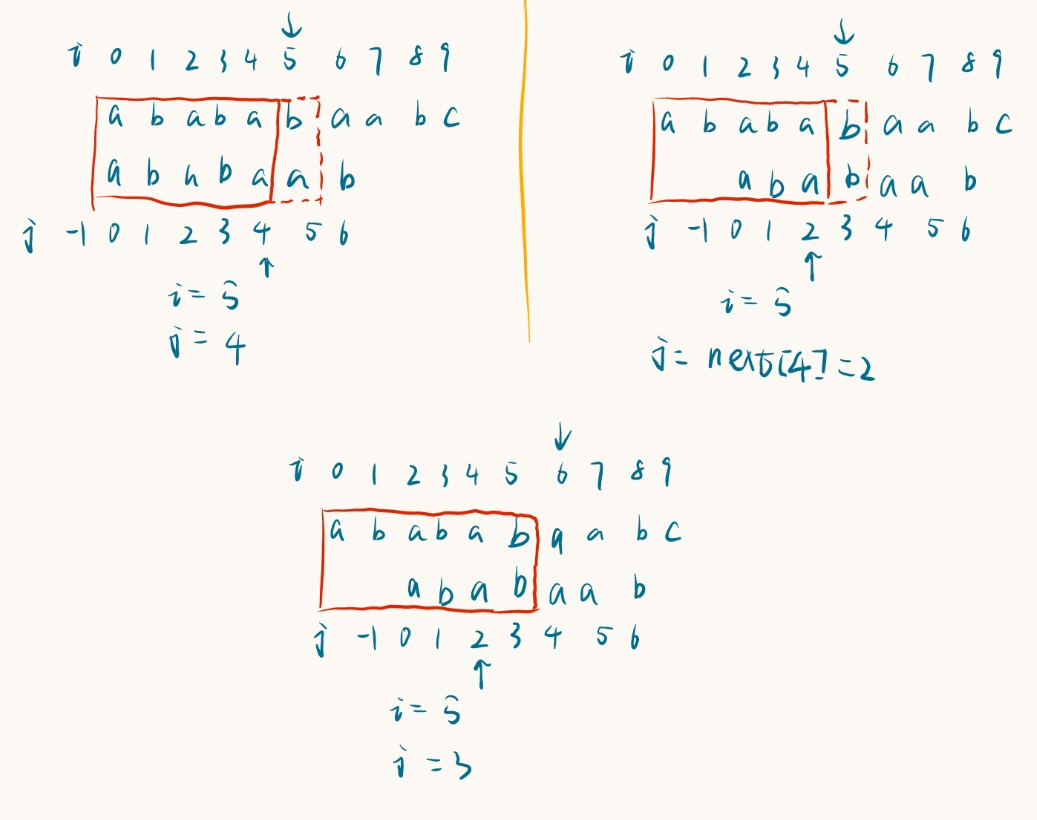 i 0 1 2 3 4 5 6 7 8 9
a b a b a b a a b c
a b a b a a b
j -1 0 1 2 3 4 5 6
i = 5
j = 4
i 0 1 2 3 4 5 6 7 8 9
a b a b a b a a b c
a b a b a a b
j -1 0 1 2 3 4 5 6
i = 5
j = next[4] = 2
i 0 1 2 3 4 5 6 7 8 9
a b a b a b a a b c
a b a b a a b
j -1 0 1 2 3 4 5 6
i = 5
j = 3